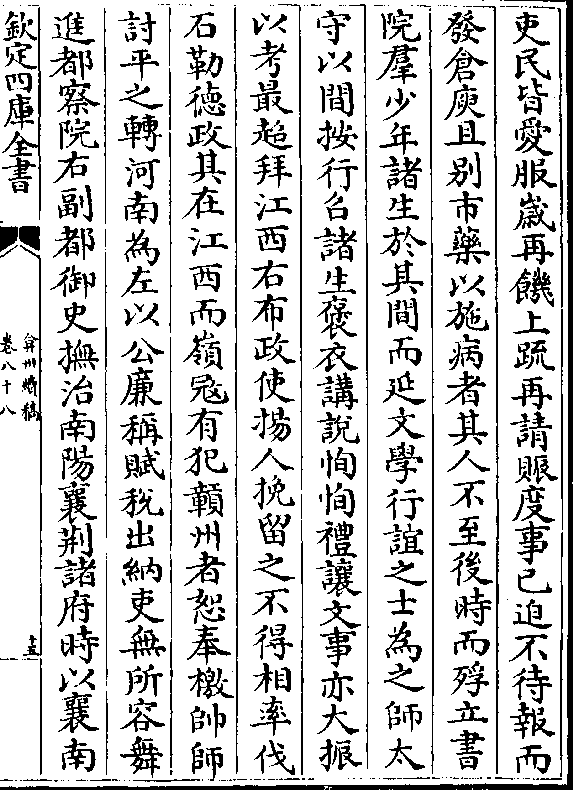 吏民皆愛服嵗再饑上疏再請賑度事已迫不待報而
發倉庾且别市藥以施病者其人不至後時而殍立書
院羣少年諸生於其間而延文學行誼之士為之師太
守以間按行召諸生褒衣講說恂恂禮讓文事亦大振
以考最超拜江西右布政使揚人挽留之不得相率伐
石勒德政其在江西而嶺冦有犯贑州者恕奉檄帥師
討平之轉河南為左以公亷稱賦稅出納吏無所容舞
進都察院右副都御史撫治南陽襄荆諸府時以襄南
欽定四庫全書
弇州續稿
卷八十八
十五